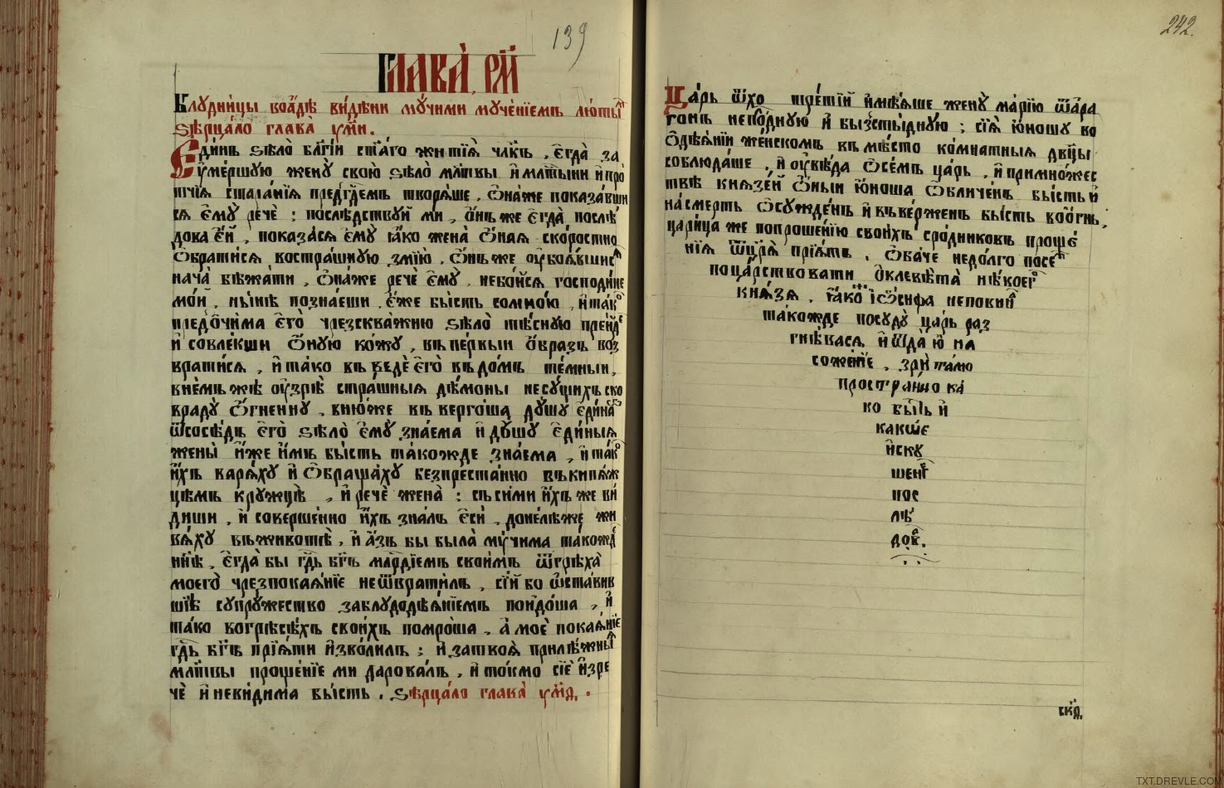 139
Глава, рм҃
Блꙋдницы воадѣ видѣни мꙋчими мꙋченїемъ лютыⷨ
ѕѣрцало глава ѱми.
Единъ ѕѣло бл҃гїи ст҃аго жития чл҃къ, єгда за
ꙋмершую женꙋ свою ѕѣло мл҃твы и млт҃ыни и про
тчїѧ старанїѧ пред̾ гд҃емъ творѧше, ѻнаже показавши
сѧ ємꙋ рече : послѣдствꙋй ми, онъ же єгда послѣ
дова єй, показасѧ ємꙋ ꙗко жена ѻнаѧ скоростию
ѻбратисѧ востраш̾ную змїю, ѻнъ же ꙋбоѧвшисѧ
нача бѣжати, ѻнаже рече ємꙋ, небойсѧ господине
мой, нн҃ѣ познаеши, єже бысть со мною, и такѡ
пред̾ очима єго чрезскважню ѕѣло тѣсную прейде
и совлекши ѻную кожꙋ, въ первыи ѻбразъ воз
вратисѧ, и тако въведе єго въ домъ темныи,
внемъже ꙋзрѣ страшныѧ дѣмоны несꙋщихъ ско
врадꙋ ѻгненнꙋ, внюже въвергоша дꙋшꙋ єдина
ѿсосѣдъ єго ѕѣло ємꙋ знаема и дꙋшꙋ єдиныѧ
жены иже имъ бысть такожде знаема, и такѡ
ихъ варѧхꙋ и ѻбращахꙋ безпрестанно въкипѧ
щемъ крꙋжцѣ, и рече жена : съ сими ихъ же ви
диши, и совершенно ихъ зналъ єси, донелѣже жи
вѧхꙋ въживотѣ, и азъ бы была мꙋчима такожд
нн҃ѣ, єгда бы гд҃ь бг҃ъ млр҃дїемъ своимъ ѿгрѣха
моего чрезпокаѧнїе неѿвратилъ, сїи бо ѡставив
шїе сꙋпрꙋжество заблꙋдодѣѧнїемъ пойдоша, и
тако вогрѣсѣхъ своихъ помроша, а мое покаѧнїе
гд҃ь бг҃ъ прїѧти изволилъ : и за твоѧ прилѣжныѧ
мл҃твы прощенїе ми даровалъ, и токмо сїе изре
че и невидима бысть. ѕѣрцало глава ѱмѳ.
242.
Царь ѿхо третїй имѣѧше женꙋ марїю ѿара
гонъ неплодную и безстыдную ; сїѧ юношꙋ во
ѻдѣѧнїи женскомъ въ мѣсто комнатныѧ дв҃цы
соблюдаше, и ꙋвѣда ѻсемъ царь, и примножес
твѣ кнѧзей ѻныи юноша ѻбличенъ бысть и
на смерть ѻсꙋжденъ и въверженъ бысть воогнь,
царица же попрошенїю своихъ сродниковъ проще
нїѧ ѿцр҃ѧ прїѧтъ, ѻбаче недолго посеⷨ
поцарствовати, ѻклевѣта нѣкоегѡ
кнѧзѧ, ꙗко їѡсифа неповин
такожде посꙋдꙋ царь раз
гнѣвасѧ, и ѿда ю на
сожженїе, зри тамо
пространно ка
ко бысть и
какѡе
искꙋ
шенї
пос
лѣ
дова.
скд.
TXT.DREVLE.COM